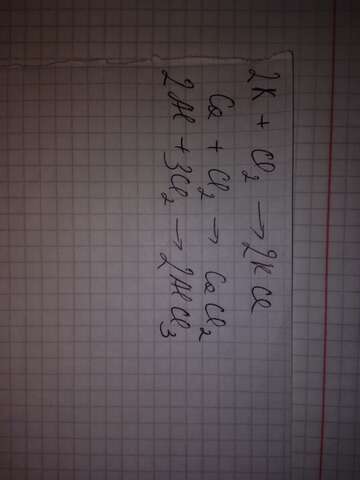 2K + Cl₂ → 2KCl
Ca + Cl₂ → CaCl₂
2Al + 3Cl₂ → 2AlCl₃